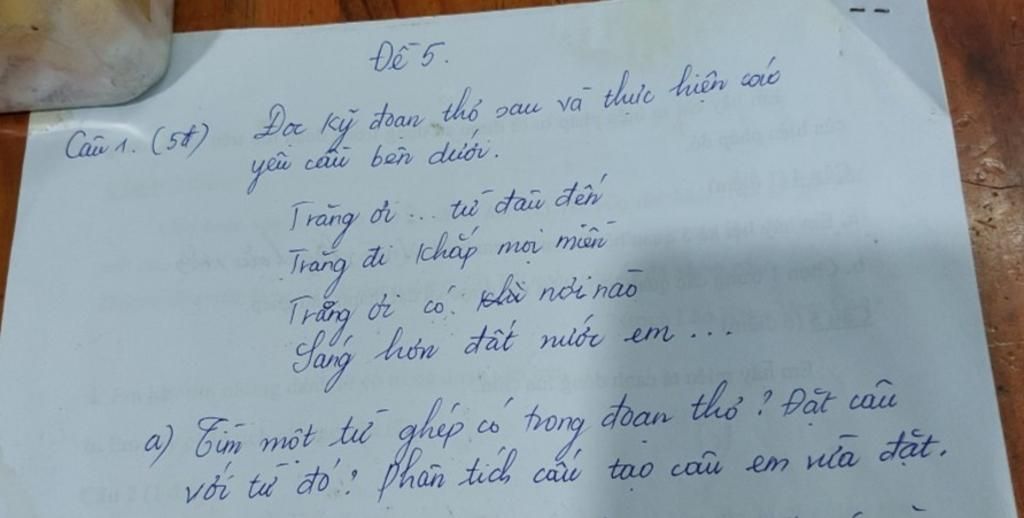 Đề 5.
Câu 1. (5đ) Đọc kỹ đoạn thơ sau và thực hiện các
yêu cầu bên dưới.
Trăng ơi ... từ đâu đến
Trăng đi khắp mọi miền
Trăng ơi có nơi nào
Sáng hơn đất nước em ...
a) Tìm một từ ghép có trong đoạn thơ? Đặt câu
với từ đó? Phân tích cấu tạo câu em vừa đặt.